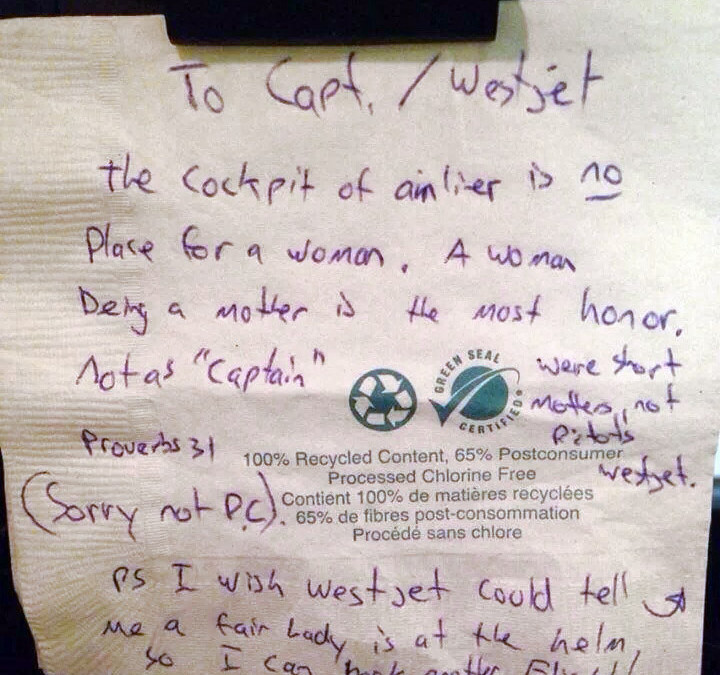 To Capt. / Westjet
the cockpit of airliner is no
Place for a woman. A woman
being a mother is the most honor.
Not as "Captain"
were short
mothers, not
Pilots
westjet.
Proverbs 31
(Sorry not P.C).
GREEN SEAL
CERTIFIED
100% Recycled Content, 65% Postconsumer
Processed Chlorine Free
Contient 100% de matières recyclées
65% de fibres post-consommation
Procédé sans chlore
PS I wish westjet could tell
me a fair Lady is at the helm,
so I can book another Flight!